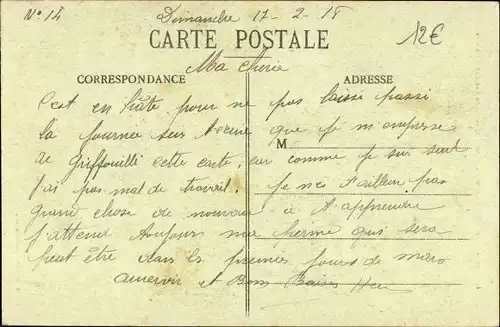 N° 14
Dimanche 17-2-18
12€
CARTE POSTALE
Ma Cherie
CORRESPONDANCE
ADRESSE
C'est en hâte pour ne pas laissé passé
la journée sans t'écrire que je m'empresse
M
de griffouillé cette carte, car comme je suis seul
j'ai pas mal de travail. Je n'es d'ailleur pas
grand chose de nouveau à t'apprendre
j'attend toujours ma perme qui sera
peut être dans les premier jours de mars
aurevoir et Bons Baisers